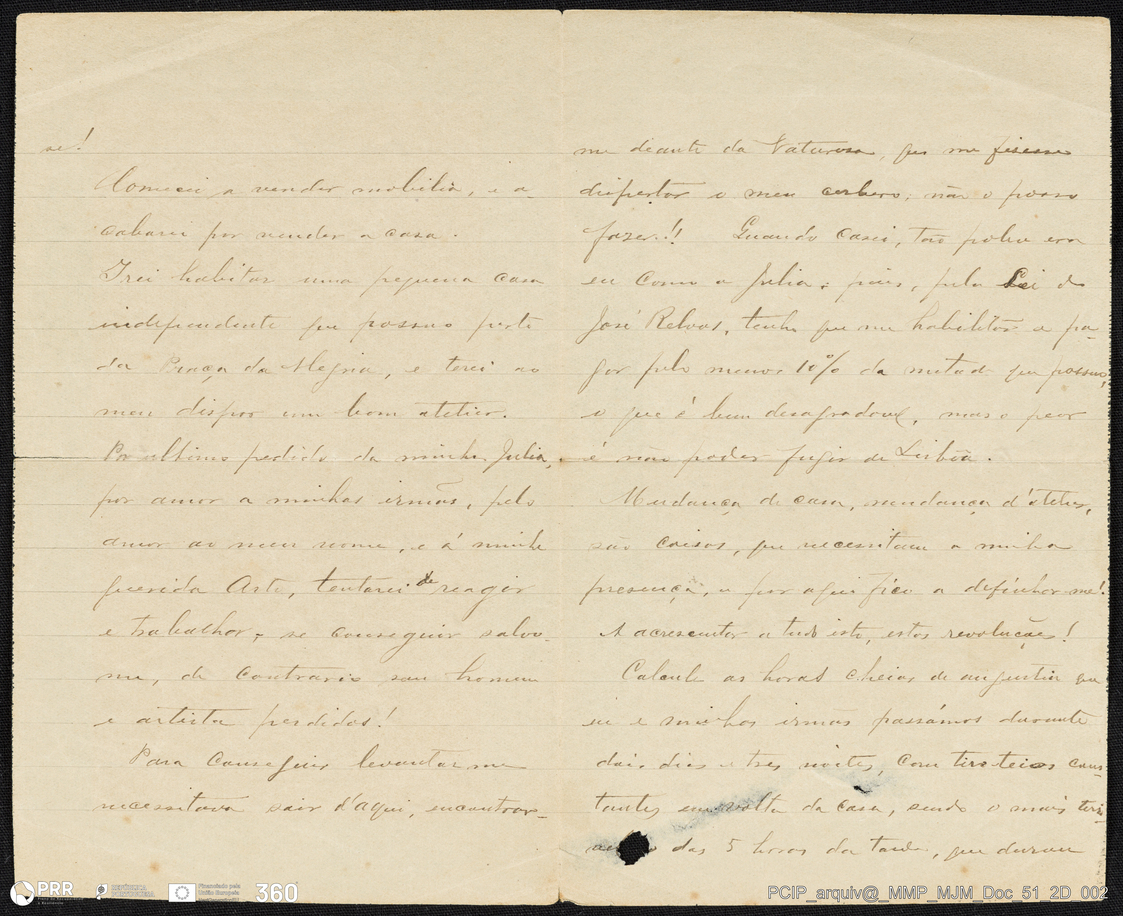 se!
Comecei a vender mobilia, e a
cabarei por vender a casa.
Irei habitar uma pequena casa
independente que possuo perto
da Praça da Alegria, e terei ao
meu dispor um bom atelier.
Por ultimo pedido da minha Julia,
por amor a minhas irmãs, pelo
amor ao meu nome, e á minha
querida Arte, tentarei de reagir
e trabalhar; se conseguir salvo-
me, de contrario sou homem
e artista perdidos!
Para conseguir levantar me
necessitava sair d'aqui, encontrar-
me deante da Natureza, que me fizesse
dispertar o meu cerbero; não o posso
fazer!! Quando casei, tão pobre era
eu como a Julia; pois, pela Lei do
José Relvas, tenho que me habilitar a pa-
gar pelo menos 10% da metade que possuo,
o que é bem desagradavel, mas o peor
é não poder fugir de Lisbôa.
Mudança de casa, mudança d'atelier,
são coisas, que necessitam a minha
presença, e por aqui fico a definhar-me!
A acrescentar a tudo isto, estas revoluções!
Calcule as horas cheias de angustia que
eu e minhas irmãs passámos durante
dois dias e tres noites, com tiroteios cons-
tantes em volta da casa, sendo o mais terri-
das 5 horas da tarde, que durou
PRR
REPÚBLICA PORTUGUESA
Financiado pela União Europeia
360
PCIP_arquiv@_MMP_MJM_Doc_51_2D_002